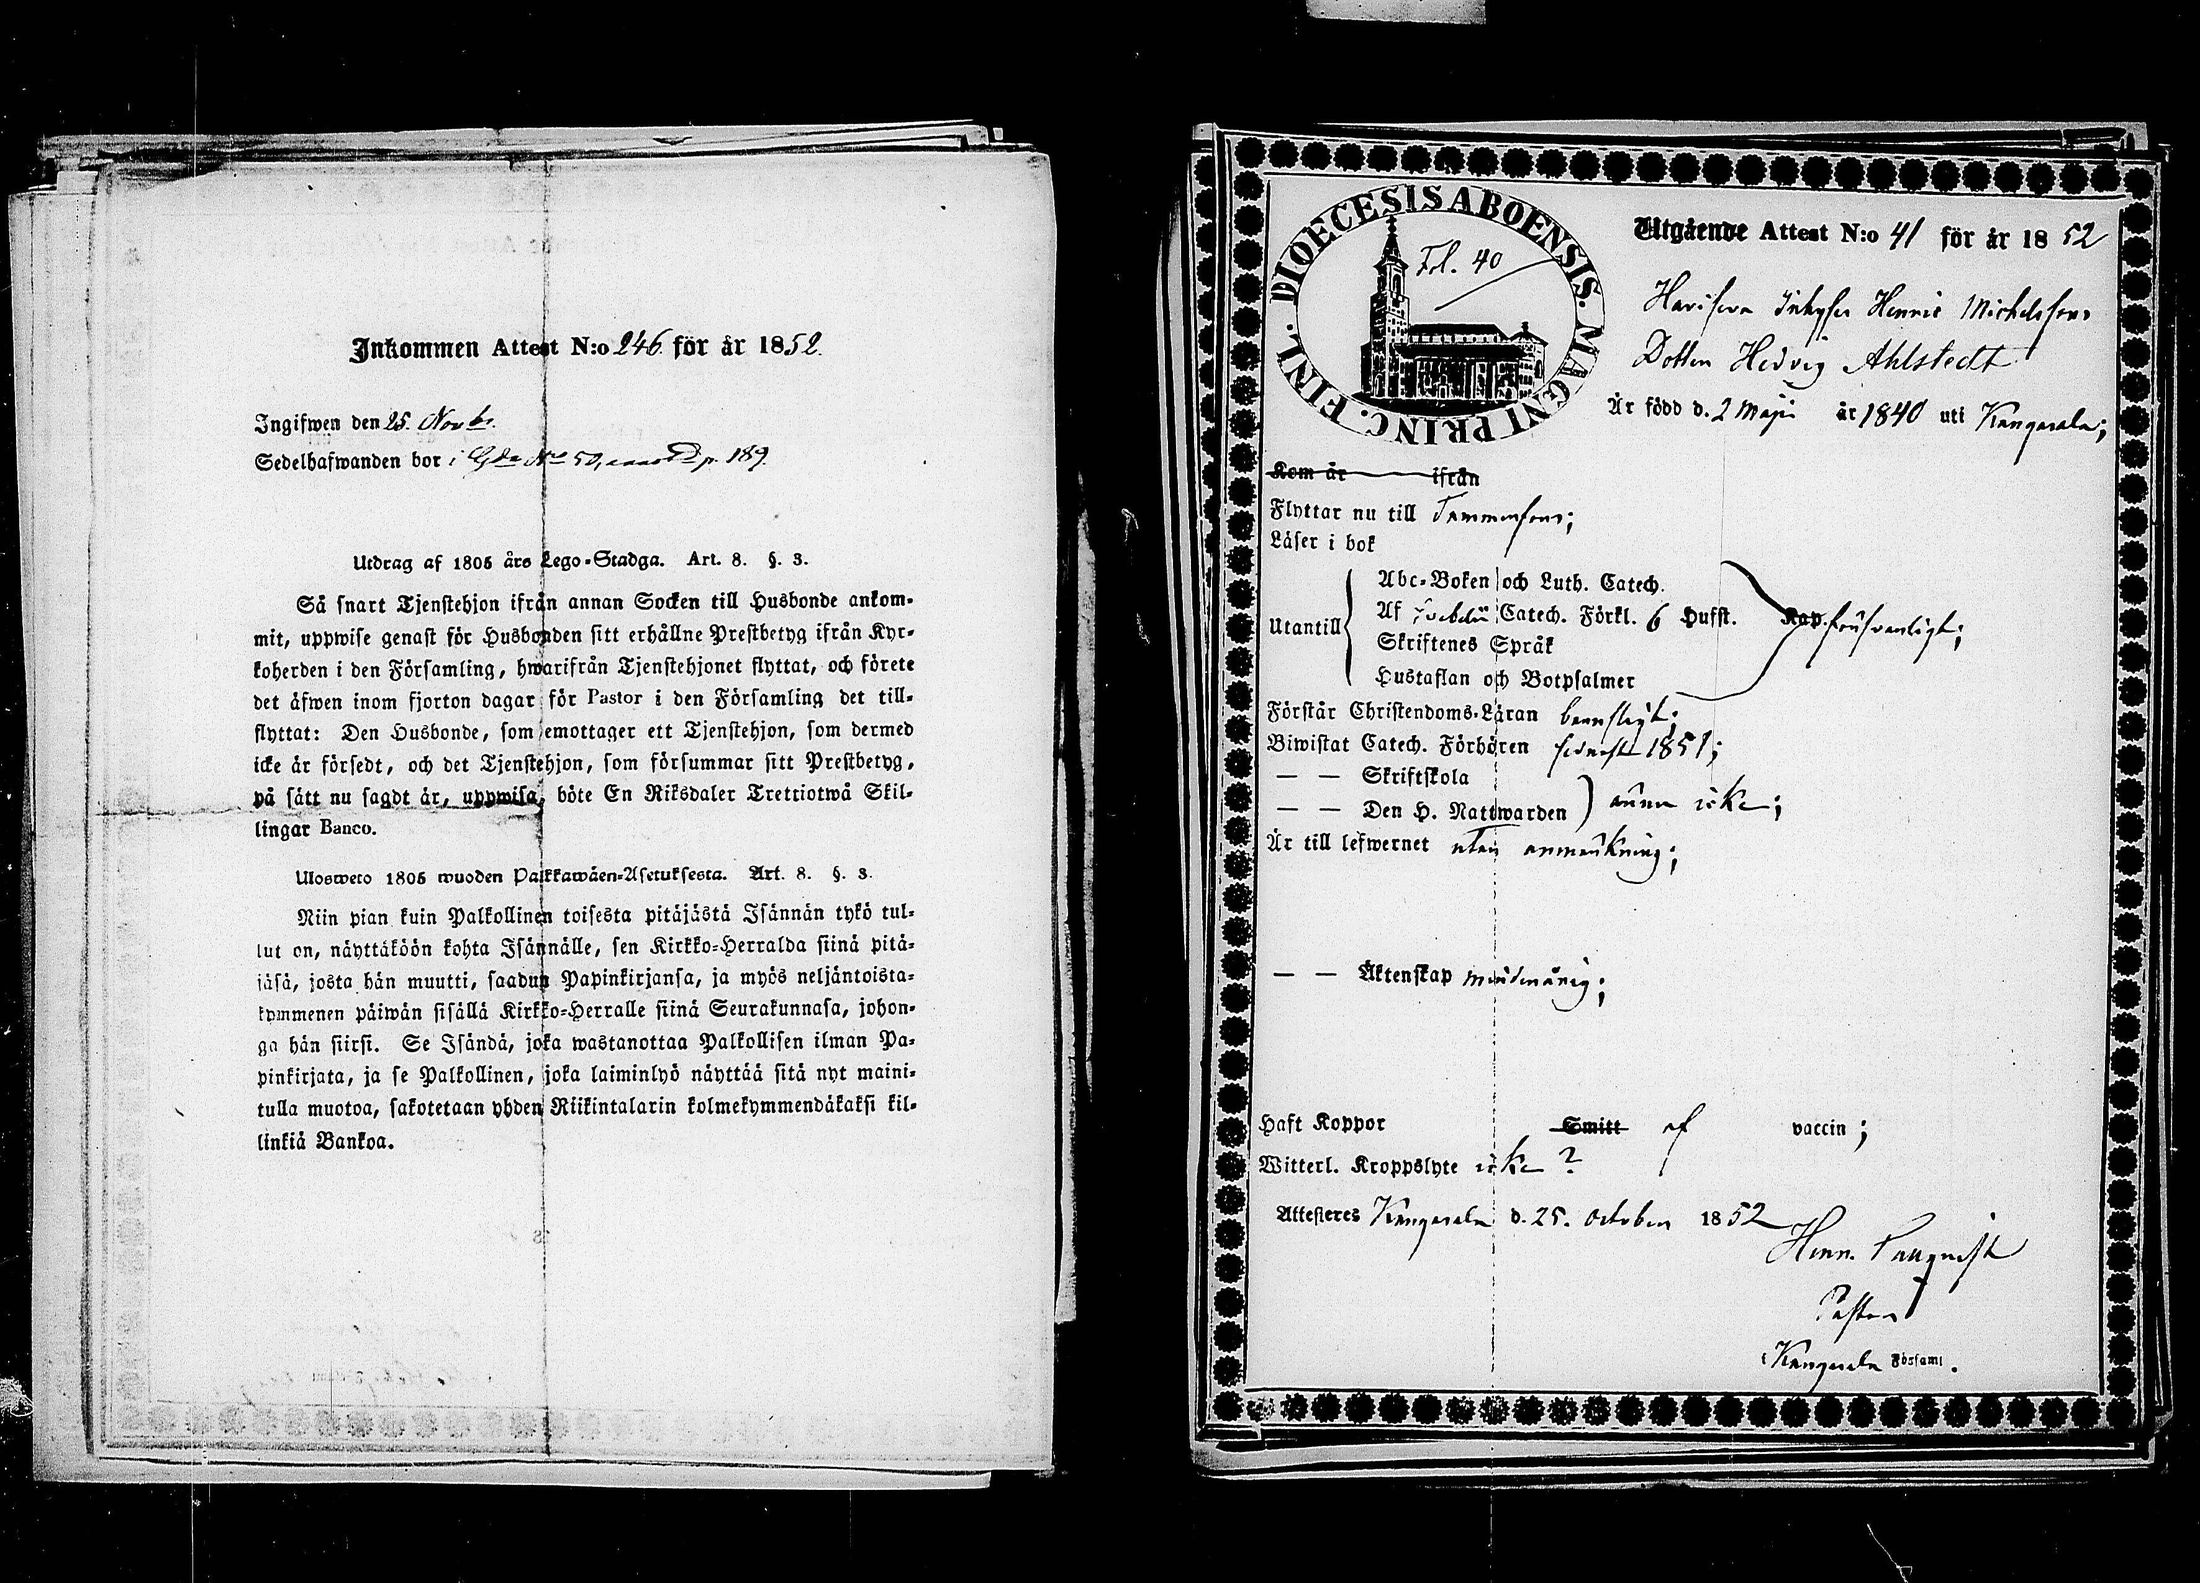 Inkommen Attest N:o 246 för år 1852.
Ingifwen den 25. Novbr.
Sedelhafwanden bor i Gda No 50, p. 189.
Utdrag af 1805 års Lego-Stadga. Art. 8. §. 3.
Så snart Tjenstehjon ifrån annan Socken till Husbonde ankom-
mit, uppwise genast för Husbonden sitt erhållne Prestbetyg ifrån Kyr-
koherden i den Församling, hwarifrån Tjenstehjonet flyttat, och förete
det äfwen inom fjorton dagar för Pastor i den Församling det till-
flyttat: Den Husbonde, som emottager ett Tjenstehjon, som dermed
icke är försedt, och det Tjenstehjon, som försummar sitt Prestbetyg,
på sätt nu sagdt är, uppwisa, böte En Riksdaler Trettiotwå Skil-
lingar Banco.
Ulosweto 1805 wuoden Palkkawäen-Asetuksesta. Art. 8. §. 3.
Niin pian kuin Palkollinen toisesta pitäjästä Isännän tykö tul-
lut on, näyttäköön kohta Isännälle, sen Kirkko-Herralda siinä pitä-
jäsä, josta hän muutti, saadun Papinkirjansa, ja myös neljäntoista-
kymmenen päiwän sisällä Kirkko-Herralle siinä Seurakunnasa, johon-
ga hän siirsi. Se Isändä, joka wastanottaa Palkollisen ilman Pa-
pinkirjata, ja se Palkollinen, joka laiminlyö näyttää sitä nyt maini-
tulla muotoa, sakotetaan yhden Riikintalarin kolmekymmendäkaksi kil-
linkiä Bankoa.
DIOECESIS ABOENSIS. MAGNI PRINC. FINL.
Fol. 40
Utgående Attest N:o 41 för år 1852
Inhyses Henric Michelsons
Dotter Hedvig Ahlstedt
Är född d. 2 Maji år 1840 uti Kangasala;
Kom år ifrån
Flyttar nu till Tammerfors;
Läser i bok
Utantill
Abc-Boken och Luth. Catech.
Af Svebelii Catech. Förkl. 6 Hufst. Kap. försvarligt;
Skriftenes Språk
Hustaflan och Botpsalmer
Förstår Christendoms-Läran
Biwistat Catech. Förhören sednast 1851;
— — Skriftskola
— — Den H. Nattwarden ännu icke;
Är till lefwernet utan anmärkning;
— — Äktenskap minderårig;
Haft Koppor Smitt af vaccin;
Witterl. Kroppslyte icke?
Attesteres Kangasala d. 25. October 1852
Henr.
Pastor
i Kangasala Förssaml.